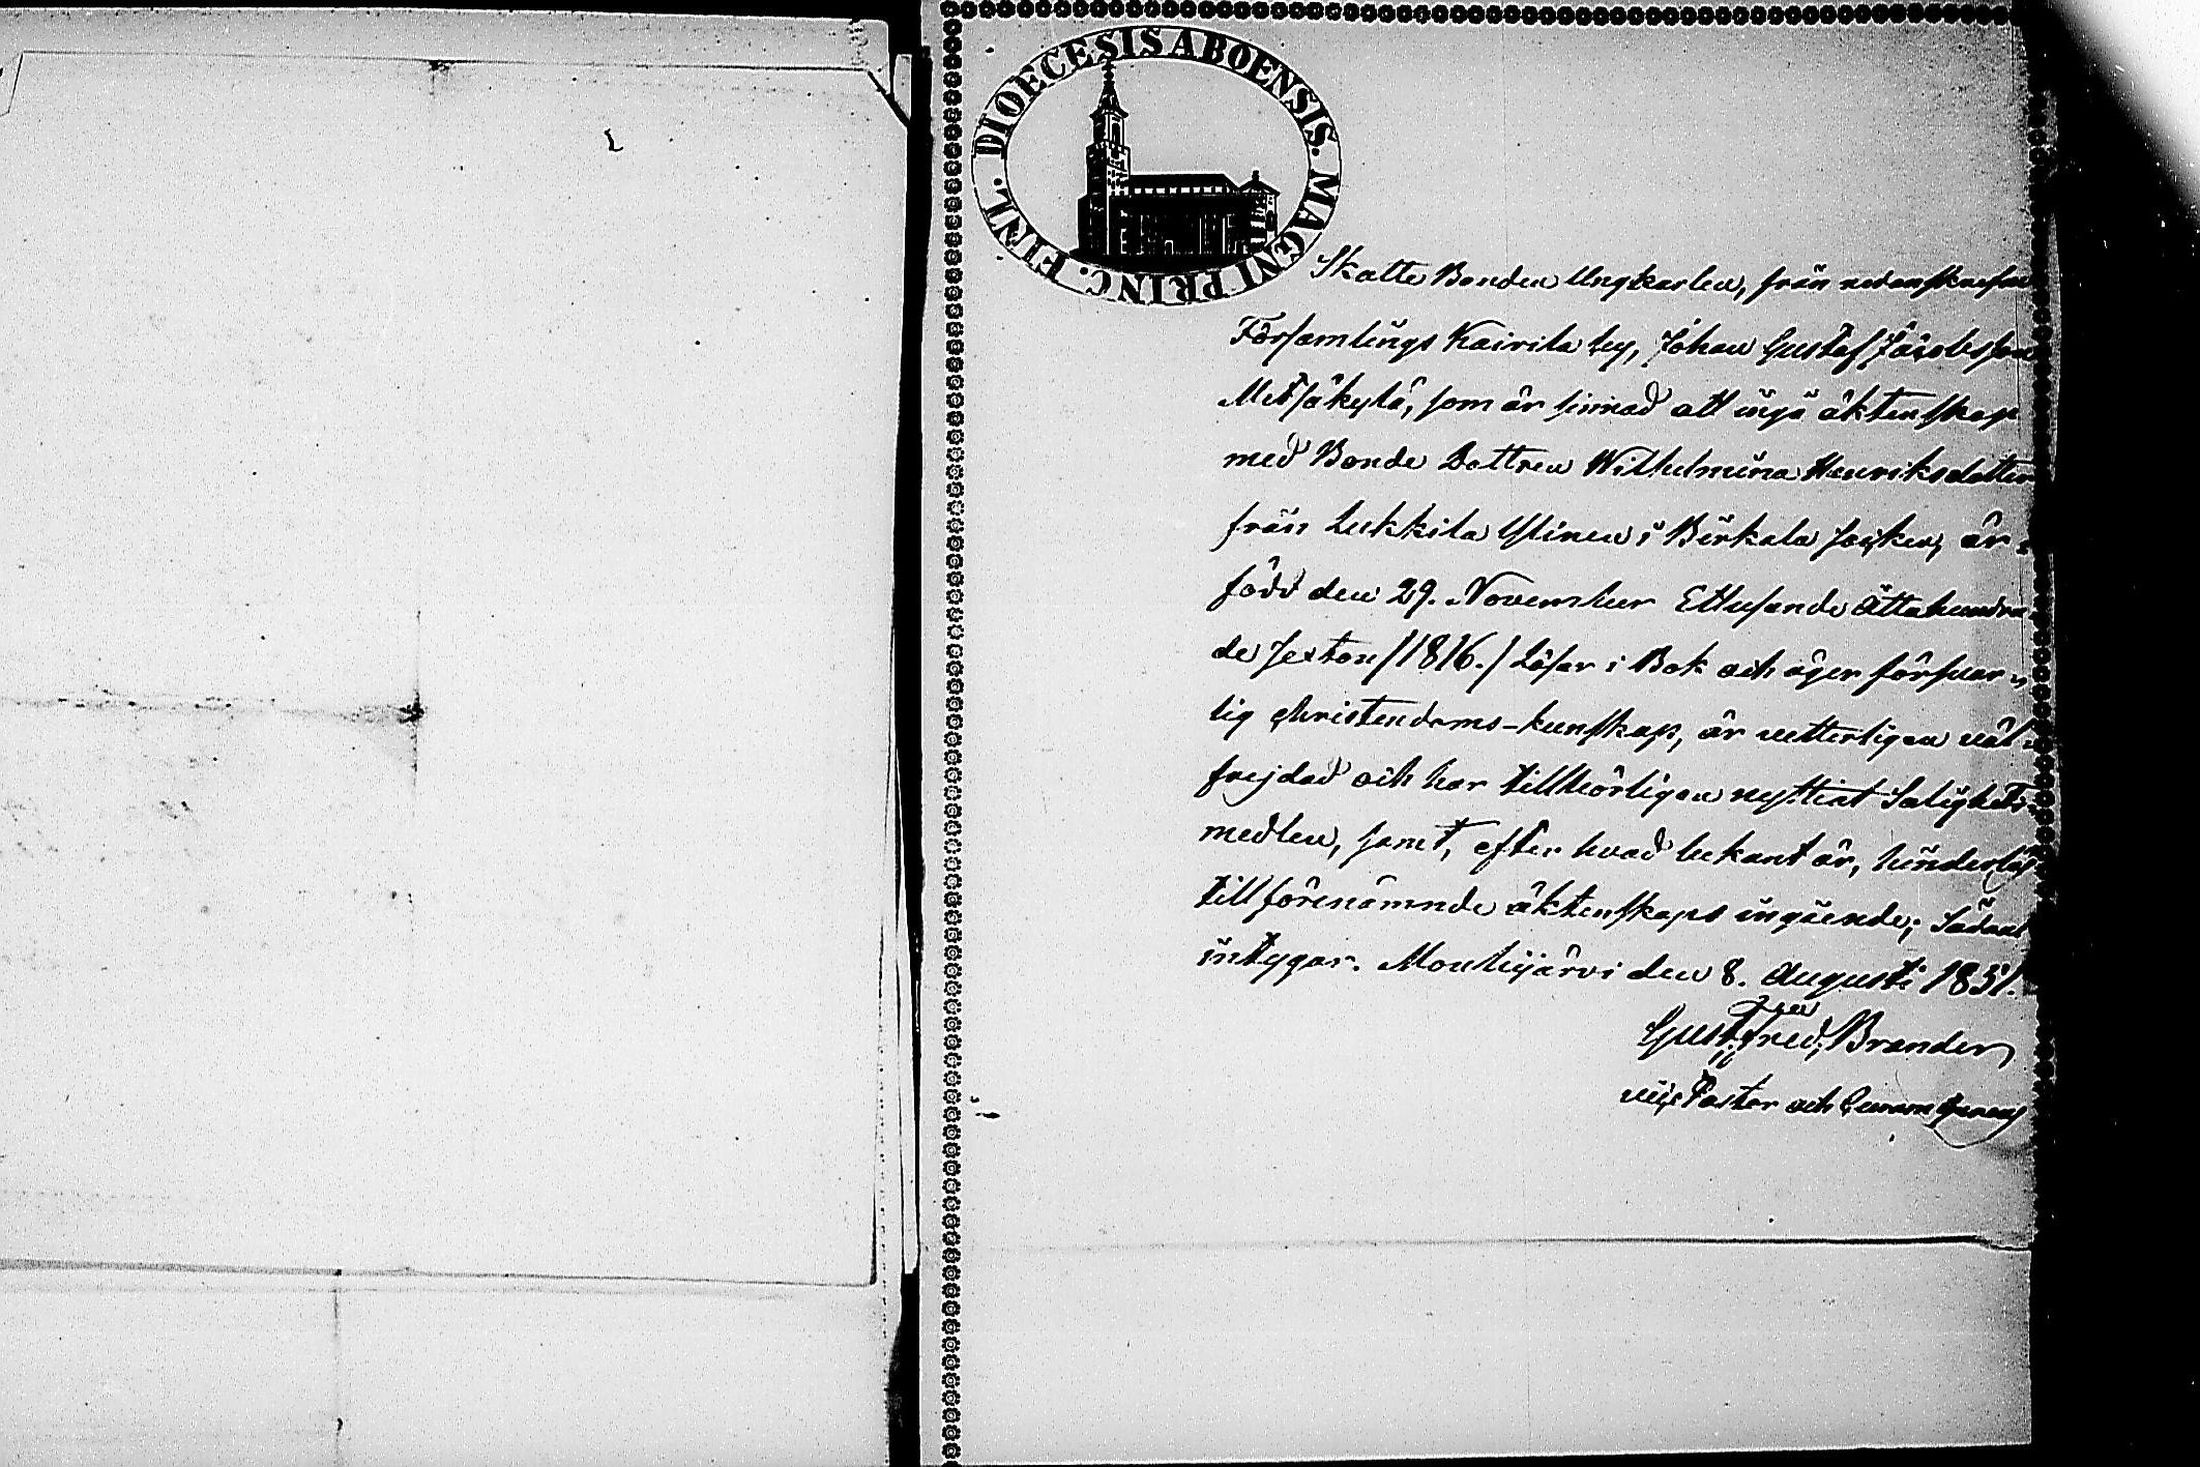 DIOECESIS ABOENSIS. MAGNI PRINC. FINL.
Skatte Bonden Ungkarlen, från nedanskrefne
Församlings Kairila by, Johan Gustaf Jacobsson
Metsäkylä, som är sinnad att ingå äktenskap
med Bonde Dottren Wilhelmina Henriksdotter
från Lukkila Ylinen i Birkala Socken, är
född den 29. November Ettusande Åttahundra-
de Sexton /1816./ Läser i Bok och äger försvar-
lig christendoms-kunskap, är vetterligen väl-
frejdad och har tillbörligen nyttiat Salighets
medlen, samt, efter hvad bekant är, hinderlös
till förenämnde äktenskaps ingående; Sådant
intygar. Mouhijärvi den 8. Augusti 1851.
Gust. Fred. Brander
vice Pastor och